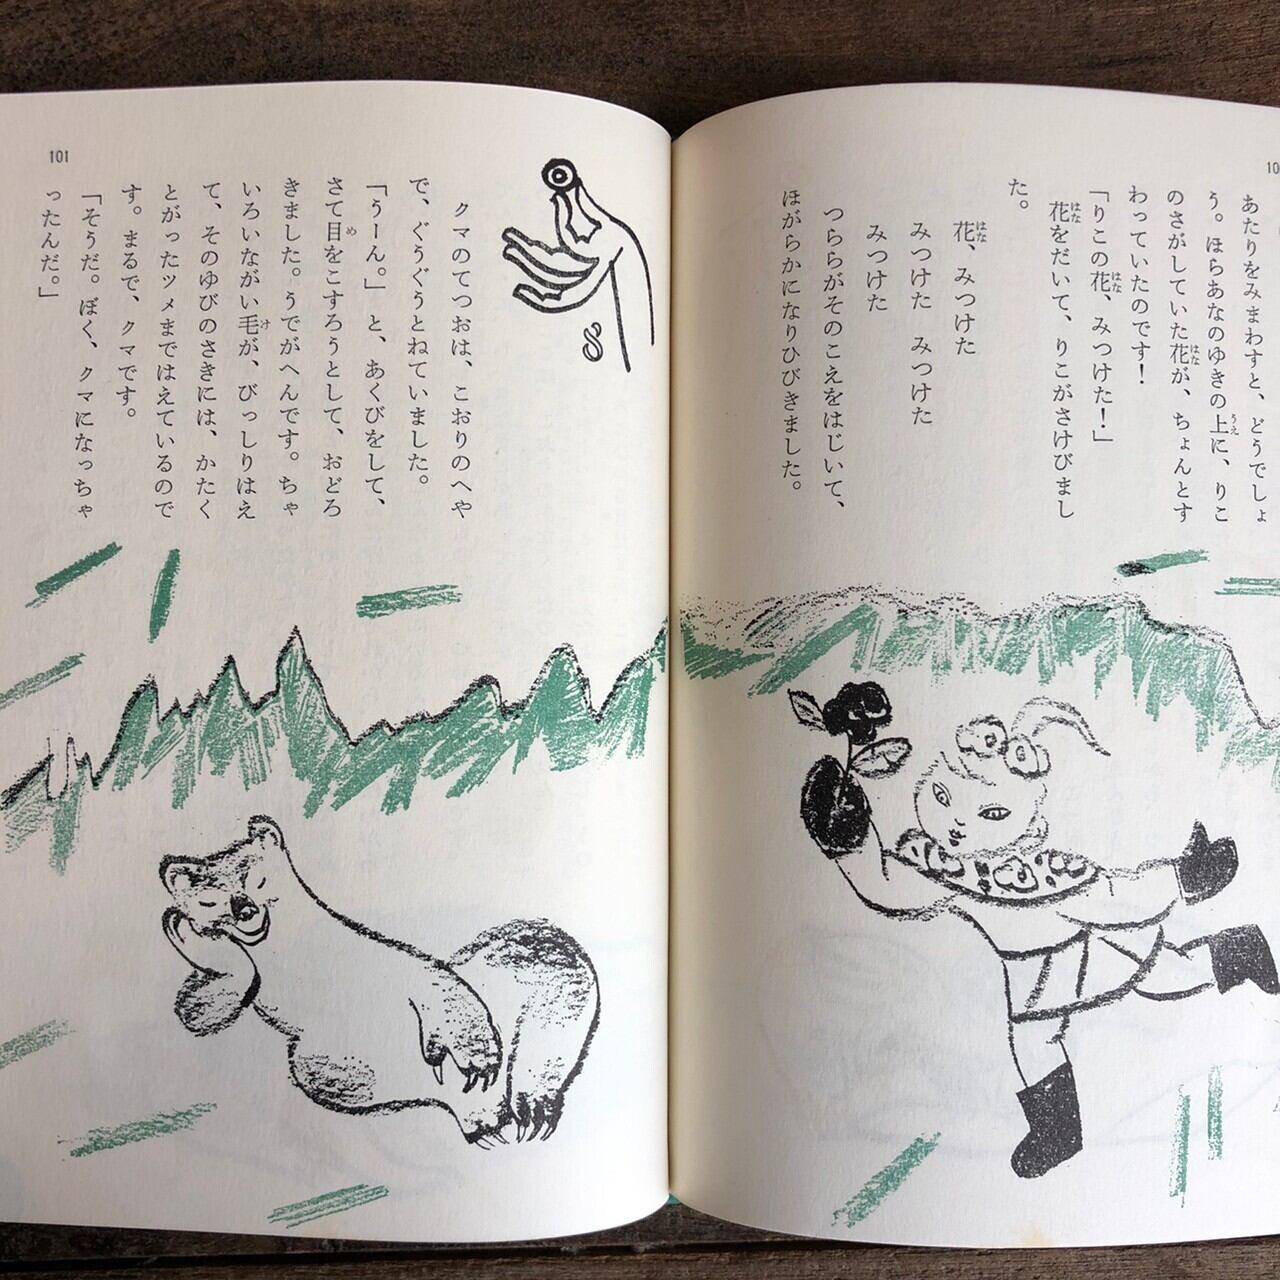 あたりをみまわすと、どうでしょ
う。ほらあなのゆきの上に、りこ
のさがしていた花が、ちょんとす
わっていたのです！
「りこの花、みつけた！」
花をだいて、りこがさけびまし
た。
花、みつけた
みつけた　みつけた
みつけた
つららがそのこえをはじいて、
ほがらかになりひびきました。
8
クマのてつおは、こおりのへや
で、ぐうぐうとねていました。
「うーん。」と、あくびをして、
さて目をこすろうとして、おどろ
きました。うでがへんです。ちゃ
いろいながい毛が、びっしりはえ
て、そのゆびのさきには、かたく
とがったツメまではえているので
す。まるで、クマです。
「そうだ。ぼく、クマになっちゃ
ったんだ。」
101